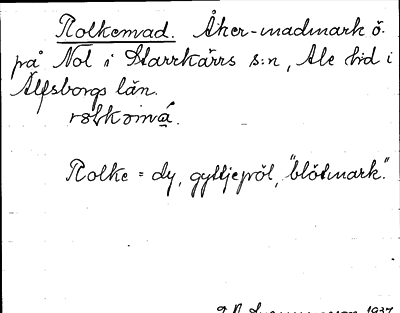 Rolkemad. Åker-madmark ö.
på Nol i Starrkärrs s:n, Ale hd i
Älfsborgs län.
Rolke = dy, gyttjepöl, "blötmark".
1937